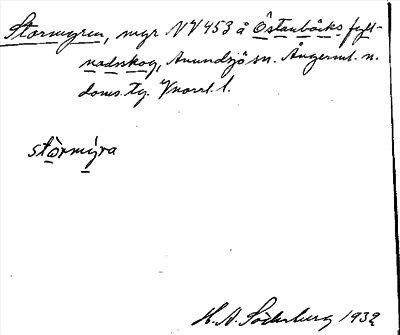 Stormyren, mgr NV 453 å Östanbäcks fyll-
nadsskog, Anundsjö sn. Ångerml. n.
doms. tg. Vnorrl. l.
stòrmýra
H. A. Söderberg 1932